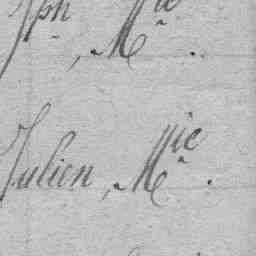 Jph, Mie.
Julien, Mie.